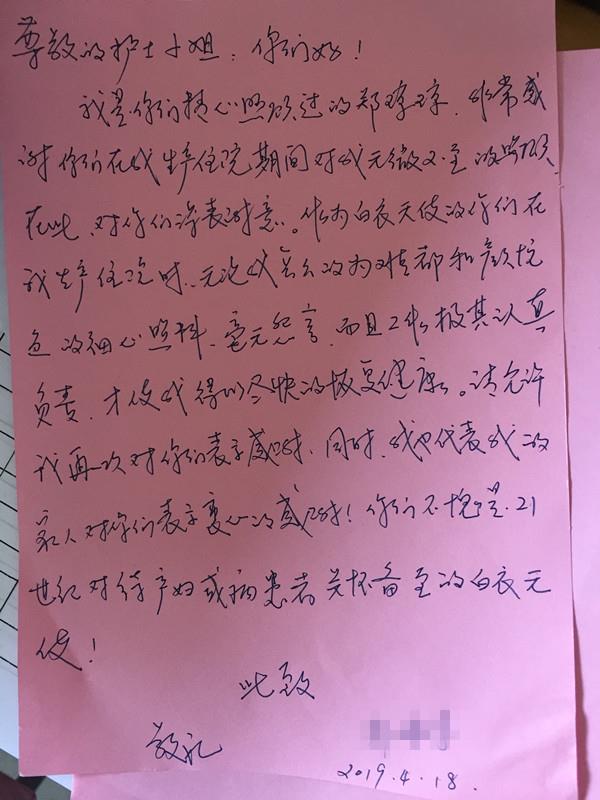 尊敬的护士小姐：你们好！
我是你们精心照顾过的郑琼琼，非常感
谢你们在我生产住院期间对我无微不至的照顾，
在此，对你们深表谢意。作为白衣天使的你们在
我生产住院时，无论我怎么的为难都和颜悦
色的细心照料，毫无怨言，而且工作极其认真
负责，才使我得以尽快的恢复健康。请允许
我再次对你们表示感谢，同时，我也代表我的
家人对你们表示衷心的感谢！你们不愧是21
世纪对待产妇或病患者关怀备至的白衣天
使！
此致
敬礼
2019.4.18.